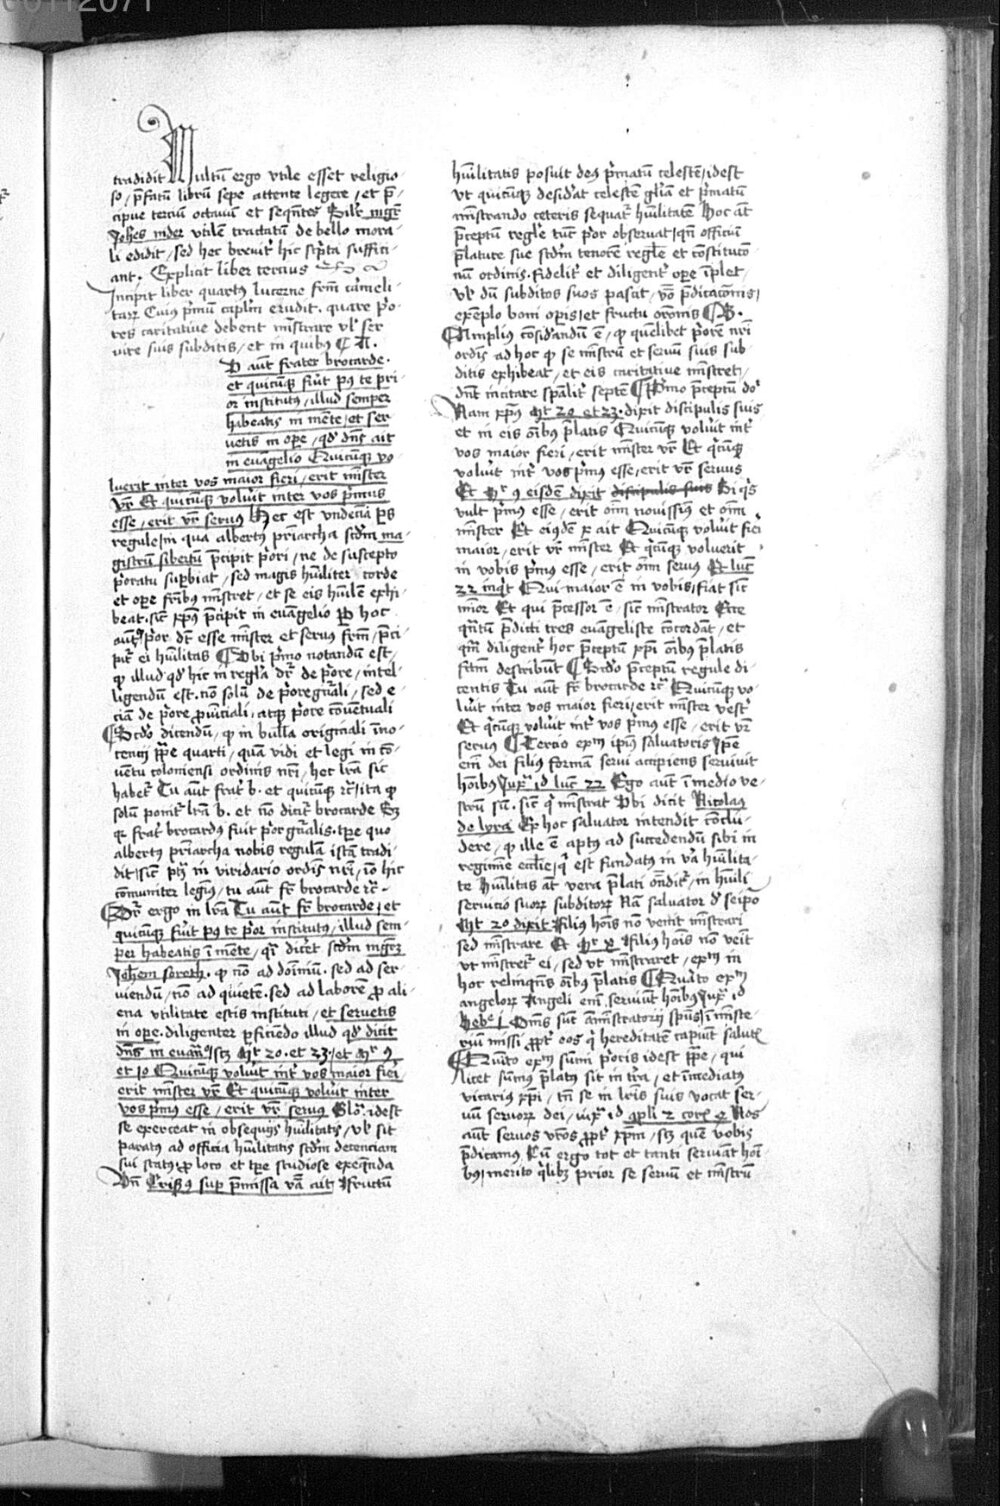 tradidit Multū ergo vtile esset religio-
so / p̄fatū librū sepe attente legere / et p̄-
cipue terciū octauū et seqn̄tes Silr̄ mgr̄
Joh̄es nider vtilē tractatū de bello mora-
li edidit / sed hec breuit̄ hic sc̄pta suffici-
ant. Explicit liber tercius
Incipit liber quartꝰ lucerne frm̄ carmeli-
tarꝝ Cuius pͥmū caplm̄ erudit. quare pͥo-
res caritatiue debent mīstrare vl̓ ser
uire suis subditis / et in quibꝰ ¶ A.
autː frater brocarde.
et quicūqꝫ fiūt pꝰ te pri-
or institutꝰ / illud semper
habeatis in mēte / et ser
uetis in ope / qd̓ dn̄s ait
in euāgelio Quicūqꝫ vo
luerit inter vos maior fieri / erit mīster
vr̄ Et quicūqꝫ voluīt inter vos pͥmus
esse / erit vr̄ seruꝰ Hec est vndecīa ps̄
regule / in qua albertꝰ pr̄iarcha scd̓m ma-
gistrū sibertū p̄cipit pͥori / ne de suscepto
pͥoratu suꝑbiat / sed magis hūiliter corde
et ope frībꝰ mīstret / et se eis hūilē exhi-
beat. sic̄ xp̄ꝰ p̄cipit in euāgelio Per hoc
aūt / pͥor dꝫ esse mīster et seruꝰ frm̄ / p̄ci-
pit̄ ei hūilitas ¶ Vbi pͥmo notandū est /
ꝙ illud qd̓ hic in regl̓a dr̄ de pͥore / intel-
ligendū est. nō solū de pͥore gn̄ali / sed e-
ciā de pͥore ꝓuīciali / atqꝫ pͥore cōuētuali
¶ Scd̓o dicendū / ꝙ in bulla originali īno-
cencij pp̄e quarti / quā vidi et legi in cō-
uētu coloniensi ordinis nr̄i / hec lr̄a sic
habet̄ Tu aūt frat̄ b. et quicūqꝫ rc̄ / ita ꝙ
solū ponit̄ lr̄a b. et nō dicat̄ brocarde Sꝫ
qr̄ frat̄ brocardꝰ fuit pͥor gn̄alis. tp̄e quo
albertꝰ pr̄iarcha nobis regulā istā tradi-
dit / sic̄ ptꝫ in viridario ordis̄ nr̄i / iō hic
cōmuniter legim̄ꝰ / tu aūt fr̄ brocarde rc̄.
¶ Dr̄ ergo in lr̄a Tu aūt fr̄ brocarde / et
quicūqꝫ fiūt pꝰ te pͥor institutꝰ / illud sem-
per habeatis ī mēte / qͥ dicet scd̓m mgr̄m
Joh̄em soreth. ꝙ nō ad dōiniū. sed ad ser-
uiendū / nō ad quietē. sed ad laborē ꝓ ali-
ena vtilitate estis instituti / et seruetis
in ope. diligenter ꝑficiēdo illud qd̓ dicit
dn̄s in euan̄ / scꝫ Mt̄ 20. et 23. et Mr̄ 9
et 10 Quicūqꝫ voluīt int̄ vos maior fieri
erit mīster vr̄ Et quicūqꝫ voluīt inter
vos pͥmꝰ esse / erit vr̄ seruꝰ Glo. idest
se exerceat in obsequijs hūilitatis / vl̓ sit
paratꝰ ad officia hūilitatis scd̓m decenciam
sui statꝰ / ꝓ loco et tp̄e studiose exeqn̄da
Vn̄ Crisꝰ suꝑ p̄missa vā ait / Fructū
hūilitatis posuit deꝰ pͥmatū celestē / idest
vt quicūqꝫ desid̓at celestē gl̓iā et pͥmatū
mīstrando ceteris sequat̄ hūilitatē Hoc āt
p̄ceptū regl̓e tūc pͥor obseruat / qn̄ officiū
p̄lature sue scd̓m tenorē regl̓e et cōstitucō-
nū ordinis. fidelit̄ et diligent̄ ope īplet /
vl̓ dū subditos suos pascit / vͦbo p̄dicacōnis /
exēplo boni opis / et fructu orōnis ¶ B.
¶ Amplius cōsid̓andū ē / ꝙ quēlibet pͥorē nr̄i
ordis̄ ad hoc ꝙ se mīstrū et seruū suis sub
ditis exhibeat / et eis caritatiue mīstret /
dn̄t incitare sp̄alit̄ septē ¶ Pͥmo p̄ceptū dn̄i
Nam xp̄ꝰ Mt̄ 20 et 23. dixit discipulis suis
et in eis oībꝰ p̄latis Quicūqꝫ voluīt int̄
vos maior fieri / erit mīster vr̄ Et qͥcūqꝫ
voluīt int̄ vos pͥmꝰ esse / erit vr̄ seruus
Et Mr̄ 9 eisdē dixit discipulis suis Si qͥs
vult pͥmus esse / erit oīm nouissimꝰ et oīm
mīster Et eiusdē x ait Quicūqꝫ voluīt fieri
maior / erit vr̄ mīster Et qͥcūqꝫ voluerit
in vobis pͥmus esse / erit oīm seruꝰ Et luc̄
22 inqͥt Qui maior ē in vobis / fiat sic̄
mīor Et qui p̄cessor ē / sic̄ mīstrator Ecce
qn̄tū p̄dicti tres euāgeliste cōcordāt / et
qm̄ diligent̄ hoc p̄ceptū xp̄i oībꝰ p̄latis
fctm̄ describūt ¶ Scd̓o p̄ceptū regule di-
centis Tu aūt fr̄ brocarde rc̄ Quicūqꝫ vo-
luīt inter vos maior fieri / erit mīster vest̄
Et qͥcūqꝫ voluīt int̄ vos pͥmꝰ esse / erit vr̄
seruꝰ ¶ Tercio exm̄ ipīus saluatoris Ip̄e
em̄ dei filius formā serui accipiens seruiuit
hoībꝰ / iuxͭ id luc̄ 22 Ego aūt ī medio ve-
strū sū. sic̄ qͥ mīstrat Vbi dicit Nicolaꝰ
de lyra Ex hoc saluator intendit cōclu-
dere / ꝙ ille ē aptꝰ ad succedendū sibi in
regimīe eccl̓ie / qͥ est fundatꝰ in va hūilita-
te Hūilitas āt vera p̄lati on̄dit̄ / in hūili
seruicio suorꝝ subditorꝝ Nā saluator d̓ seip̄o
Mt̄ 20 dixit Filius hoīs nō venit mīstrari
sed mīstrare Et Mr̄ x Filius hoīs nō veīt
vt mīstret̄ ei / sed vt mīstraret / exm̄ in
hoc relinqn̄s oībꝰ p̄latis ¶ Quarto exm̄
angelorꝝ Angeli em̄ seruiūt hoībꝰ / iuxͭ id
Heb̓. 1 Oēs sūt āmīstratorij sp̄ūs / ī mīste-
riū missi ꝓpt̄ eos qͥ hereditatē capiunt salut̄
¶ Quīto exm̄ sūmi pͥoris idest pp̄e / qui
licet sūmꝰ p̄latꝰ sit in tr̄a / et īmediatꝰ
vicarius xp̄i / tn̄ se in lr̄is suis vocat ser-
uū seruorꝝ dei / iuxͭ id apl̓i 2 corꝫ 4 Nos
aūt seruos vr̄os ꝓpt̄ xp̄m / scꝫ quē vobis
p̄dicamꝰ. Cū ergo tot et tanti seruiāt hoī
bꝰ / merito qͥlibꝫ prior se seruū et mīstrū